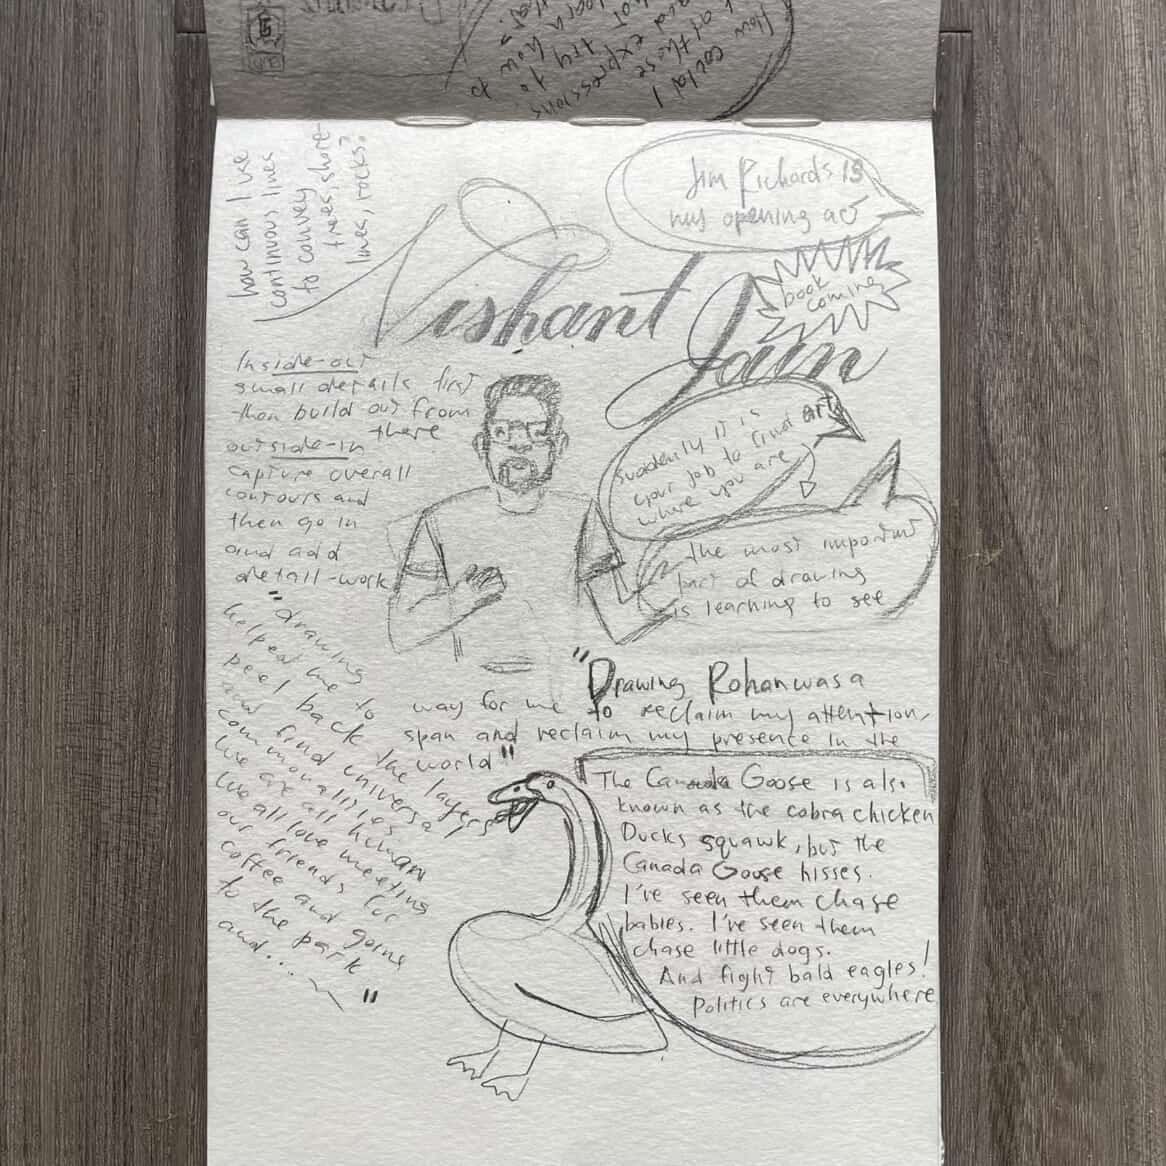 How could I
at these
expressions
try to
learn how to
how can I use
continuous lines
to convey
trees, shore-
lines, rocks?
Jim Richards is
my opening act
Nishant
Jain
book
coming
Inside-out
small details first
then build out from
there
outside-in
capture overall
contours and
then go in
and add
detail-work
Suddenly it is
your job to find art
where you are
the most important
part of drawing
is learning to see
"drawing
helped me to
peel back the layers
and find universal
commonalities
we are all human
We all love meeting
our friends for
coffee and going
to the park
and... "
"Drawing Rohan was a
way for me to reclaim my attention,
span and reclaim my presence in the
world"
The Canada Goose is also
known as the cobra chicken
Ducks squawk, but the
Canada Goose hisses.
I've seen them chase
babies. I've seen them
chase little dogs.
And fight bald eagles!
Politics are everywhere